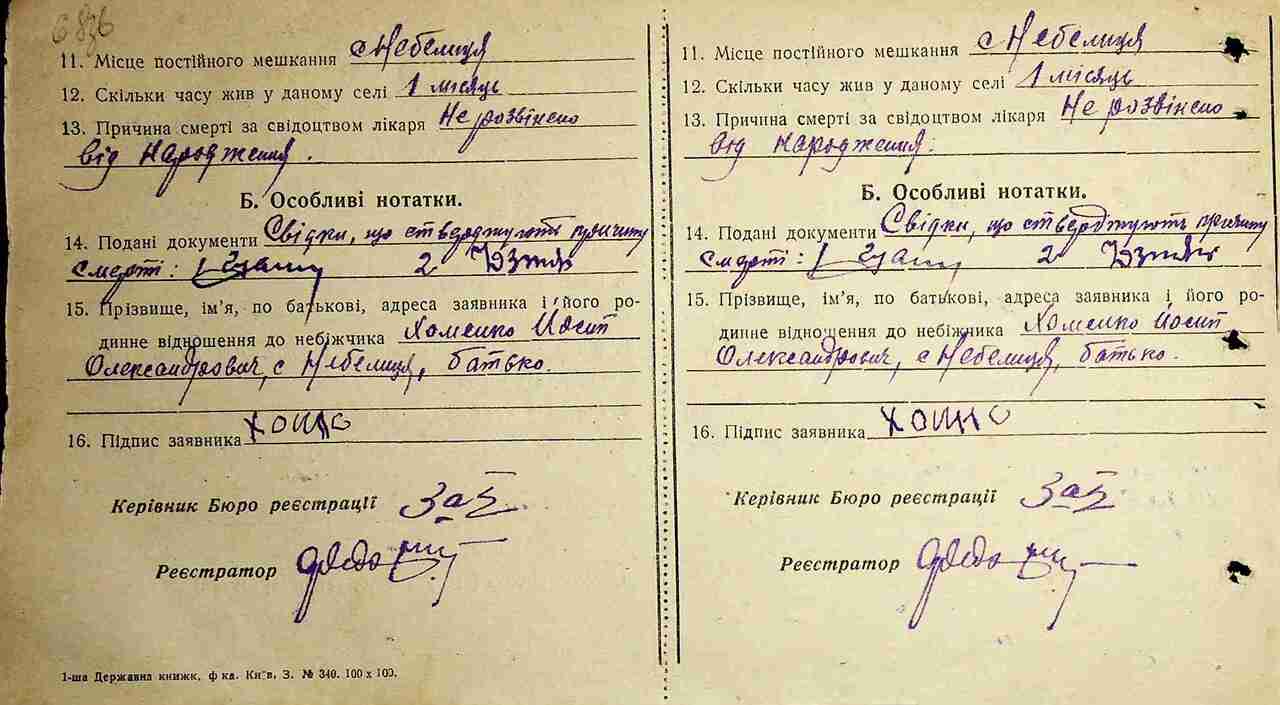 6836
11. Місце постійного мешкання с Небелиця
12. Скільки часу жив у даному селі 1 місяць
13. Причина смерті за свідоцтвом лікаря Не розвінено
від народження.
Б. Особливі нотатки.
14. Подані документи Свідки, що стверджують причину
смерті: 1 2
15. Прізвище, ім’я, по батькові, адреса заявника і його ро-
динне відношення до небіжчика Хоменко Йосип
Олександрович, с Небелиця, батько.
16. Підпис заявника
Керівник Бюро реєстрації
Реєстратор
1-ша Державна книжк, ф ка. Київ, З. № 340. 100 х 100.
11. Місце постійного мешкання с Небелиця
12. Скільки часу жив у даному селі 1 місяць
13. Причина смерті за свідоцтвом лікаря Не розвінено
від народження.
Б. Особливі нотатки.
14. Подані документи Свідки, що стверджують причину
смерті: 1 2
15. Прізвище, ім’я, по батькові, адреса заявника і його ро-
динне відношення до небіжчика Хоменко Йосип
Олександрович, с Небелиця, батько.
16. Підпис заявника
Керівник Бюро реєстрації
Реєстратор